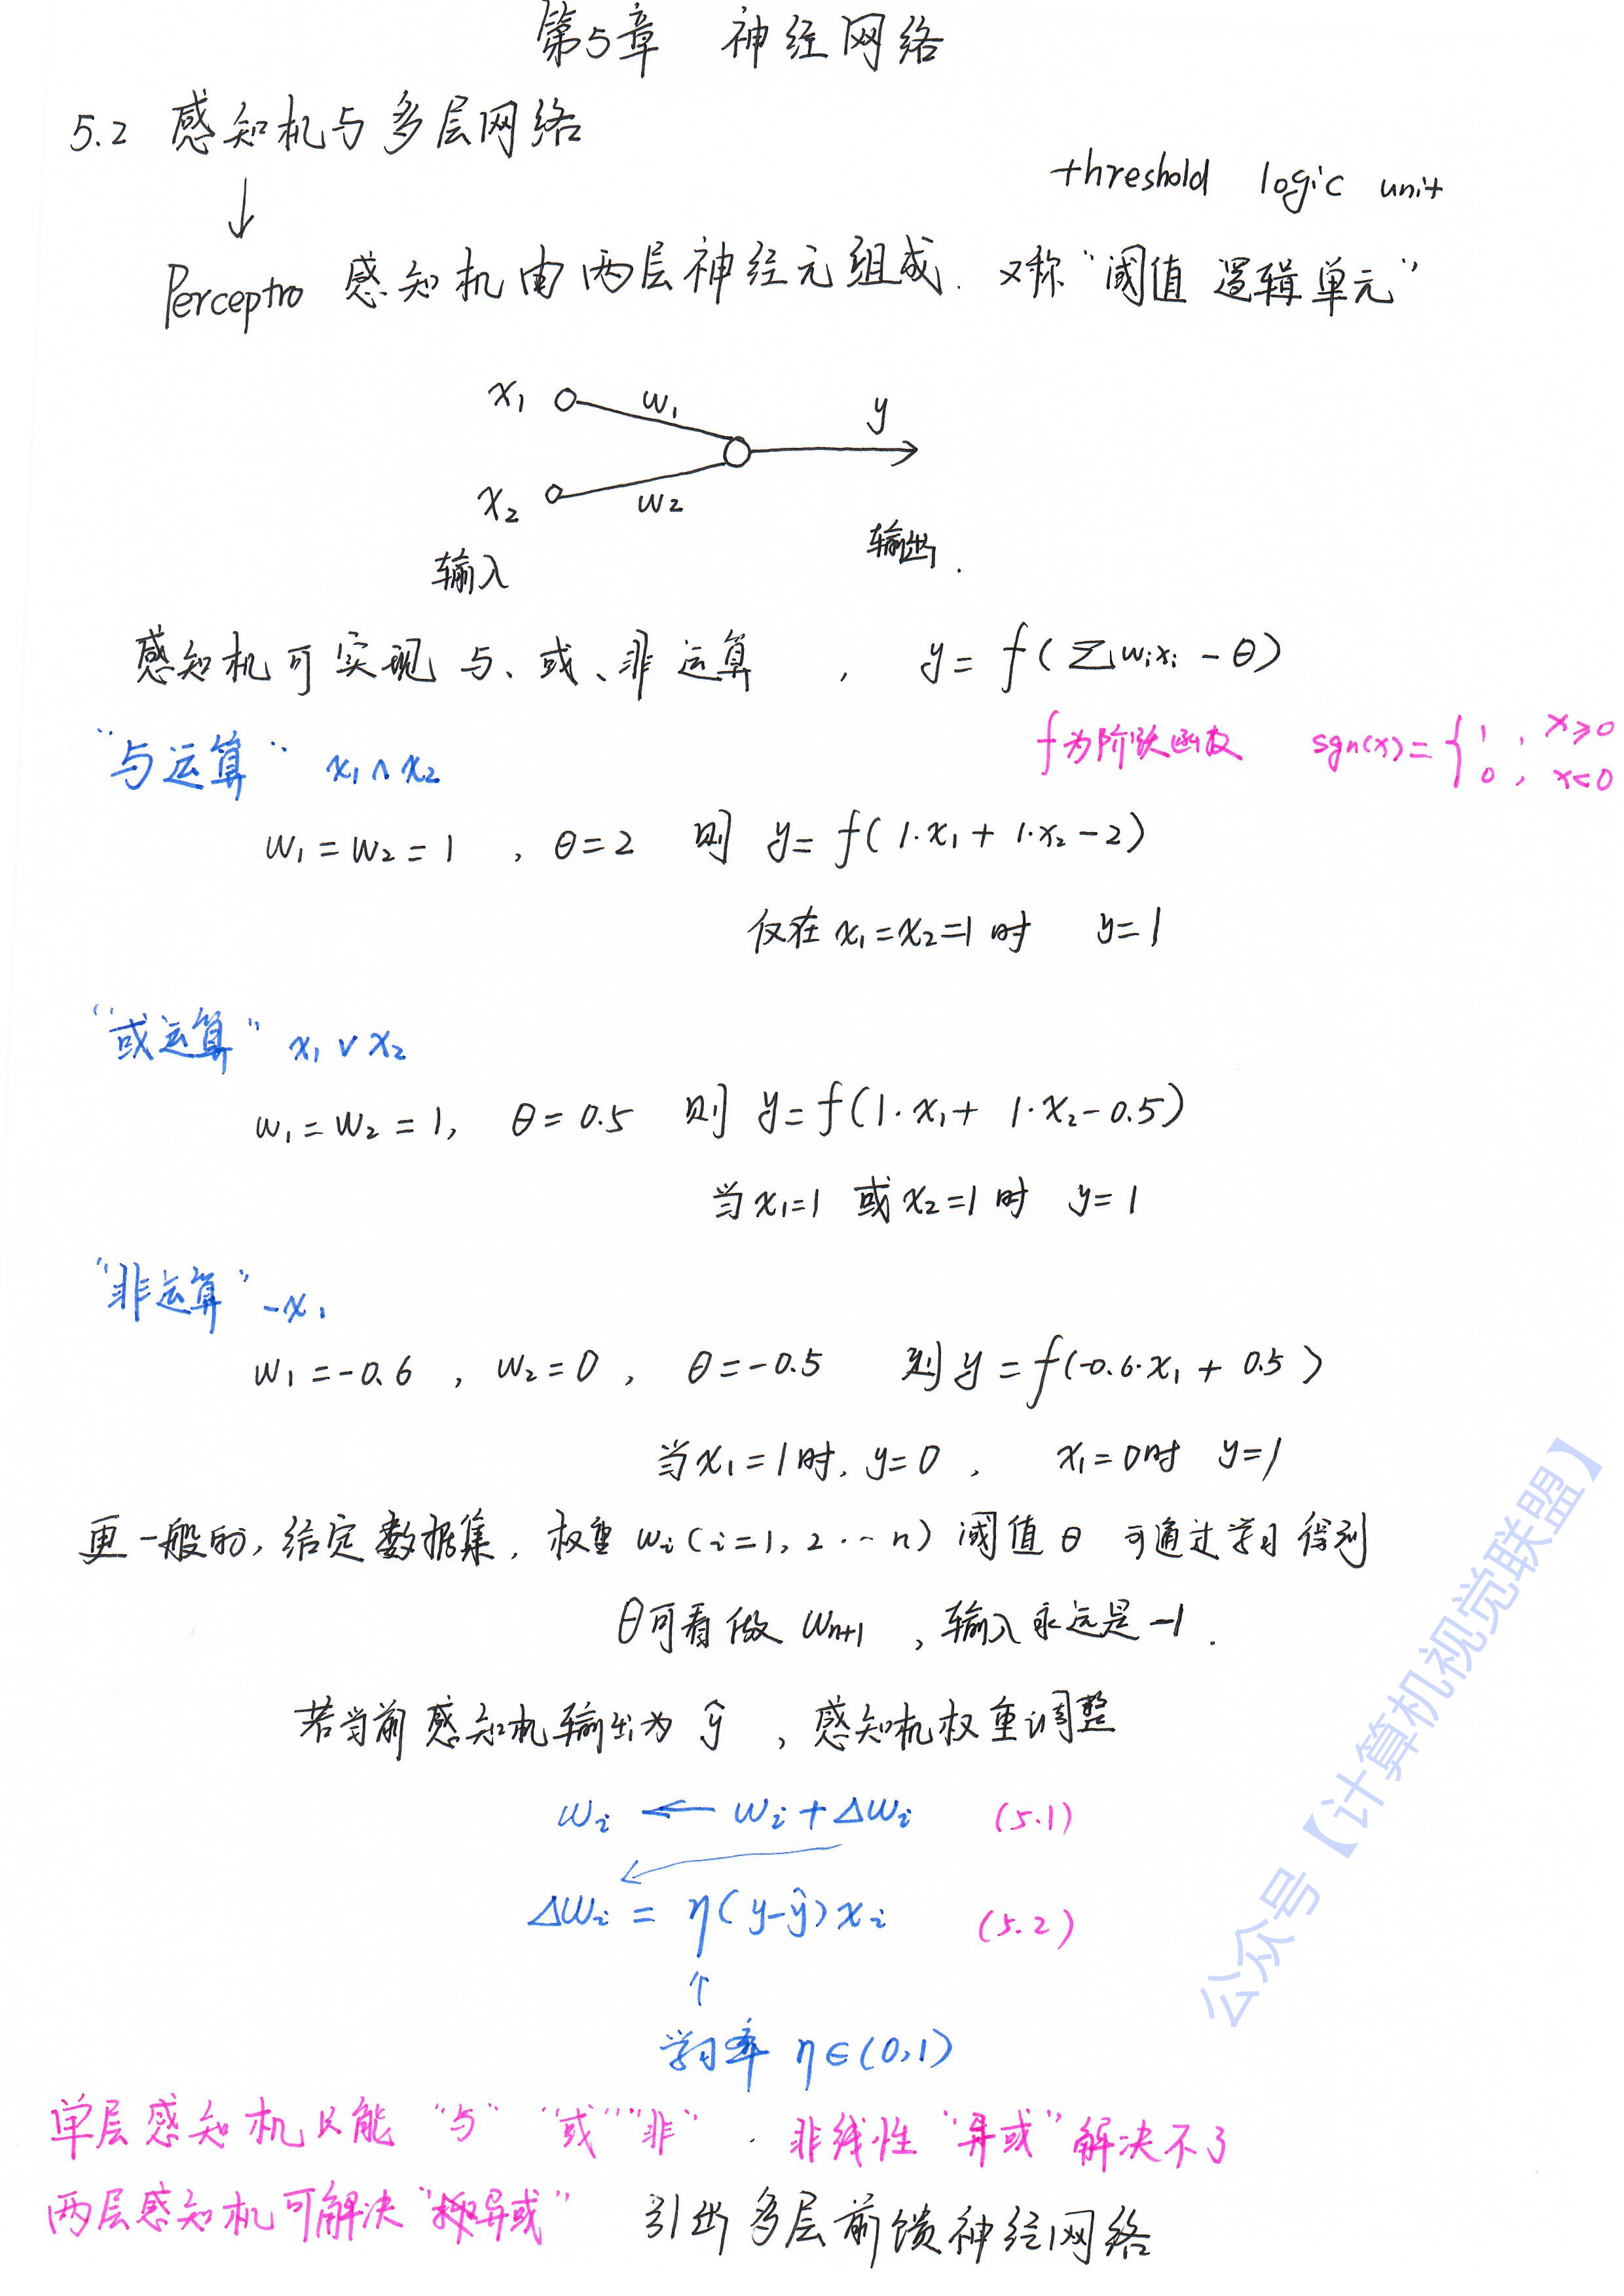 第5章 神经网络
5.2 感知机与多层网络
↓
threshold logic unit
Perceptro 感知机由两层神经元组成. 又称“阈值逻辑单元”
x₁ w₁ y
x₂ w₂
输入 输出.
感知机可实现 与、或、非运算 , y = f(∑wᵢxᵢ - θ)
f为阶跃函数 sgn(x) = { 1 , x≥0
0 , x<0
“与运算” x₁∧x₂
w₁=w₂=1 , θ=2 则 y=f(1·x₁+1·x₂-2)
仅在x₁=x₂=1时 y=1
“或运算” x₁∨x₂
w₁=w₂=1, θ=0.5 则 y=f(1·x₁+1·x₂-0.5)
当x₁=1 或x₂=1时 y=1
“非运算” -x₁
w₁=-0.6 , w₂=0 , θ=-0.5 则 y=f(-0.6·x₁+0.5)
当x₁=1时, y=0 , x₁=0时 y=1
更一般的, 给定数据集, 权重 wᵢ(i=1,2…n) 阈值θ 可通过学习得到
θ可看做 wₙ₊₁ , 输入永远是-1.
若当前感知机输出为 ŷ , 感知机权重调整
wᵢ ← wᵢ+Δwᵢ (5.1)
Δwᵢ = η(y-ŷ)xᵢ (5.2)
↑
学习率 η∈(0,1)
单层感知机只能“与”“或”“非”. 非线性“异或”解决不了
两层感知机可解决“异或” 引出多层前馈神经网络
公众号【计算机视觉联盟】